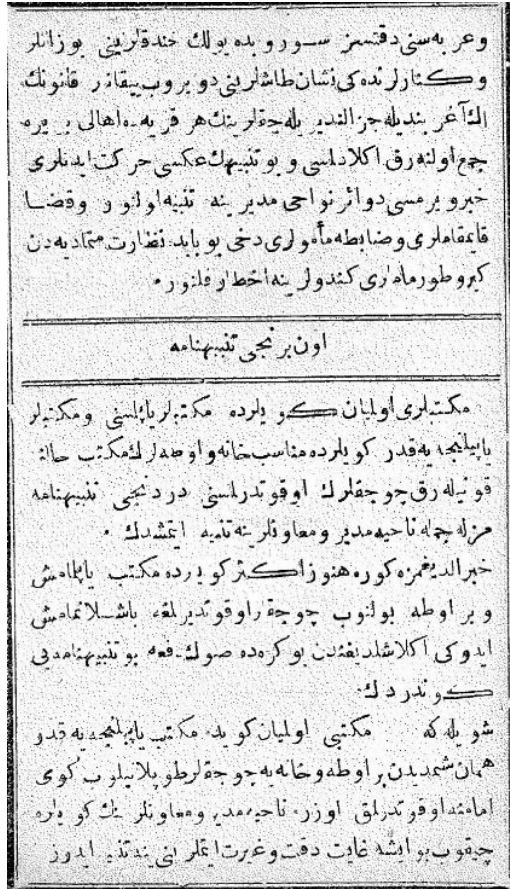 وعربه‌سنی دقتسز سورویده یولك خندقلرینی بوزانلر
وكنارلرنده‌كی نشان طاشلرینی دویروب ییقانلر قانونك
اك آغر بندیله جزالندیریله‌جقلرینك هر قریه‌ده اهالی بر یره
جمع اولنه‌رق اكلادلسی و بو تنبیهك عكسی حركت ایدنلری
خبر ویرمسی دوائر نواحی مدیرینه تنبیه اولنور وقضا
قایمقاملری وضابطه مأمولری دخی بو بابده نظارت متمادیه‌دن
كیرو طورماملری كندولرینه اخطار قلنور •
اون برنجی تنبیهنامه
مكتبلری اولمیان كویلرده مكتبلر یاپلسنی ومكتبلر
یاپیلنجه‌یه قدر كویلرده مناسب خانه و اوطه‌لرك مكتب حالنه
قونیله‌رق چوجقلرك اوقوتدرلسنی دردنجی تنبیهنامه
مزله جمله ناحیه مدیر ومعاونلرینه تنبیه ایتمشدك •
خبر الدیغمزه كوره هنوز اكثر كویلرده مكتب یاپلمامش
و بر اوطه بولنوب چوجقلر اوقوتدیرلغه باشلانمامش
ایدوكی اكلاشلدیغندن بو كره‌ده صوك دفعه بو تنبیهنامه‌یی
كوندردك •
شویله‌كه مكتبی اولمیان كویده مكتب یاپیلنجه‌یه قدر
همان شمدیدن بر اوطه وخانه‌یه چوجقلر طوپلانیلوب كوی
امامنه اوقوتدرلق اوزره ناحیه مدیر ومعاونلرینك كویلره
چیقوب بو ایشه غایت دقت وغیرت ایتملرینی ینه تنبیه ایدرز